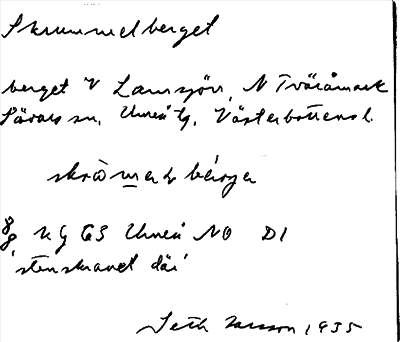 Skrummelberget
berget V Lamsjön, N Tväråmark
Sävars sn. Umeå tg. Västerbottens l.
gg KG GS Umeå NO DI
'stenskravel där'
Seth Larsson 1935